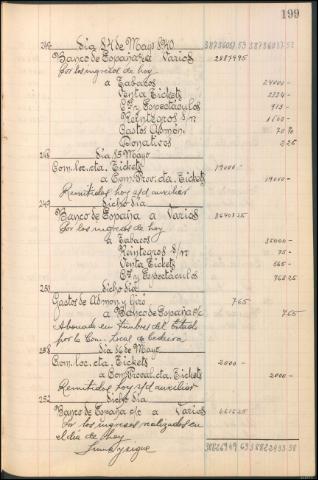 199
Día 24 de Mayo 1940
Banco de España a Varios
Por los ingresos de hoy
a Tabacos 24000 -
Venta Tickets
Cta. Espectáculos
Reintegros s/n
Gastos Admón.
Donativos 225
Día 25 Mayo
Com. loc. cta. Tickets 19000 -
a Com. Prov. cta. Tickets 19000 -
Remitidos hoy s/d auxiliar
249 Dicho día
Banco de España a Varios
Por los ingresos de hoy
a Tabacos 35000 -
Reintegros s/n 75 -
Venta Tickets 565 -
Cta. Espectáculos
250 Dicho día
Gastos de Admón y Giró 7.65
a Banco de España c/c 7.65
Abonado en timbres del Estado
por la Com. Local de
Día 26 de Mayo
Com. loc. cta. Tickets 2000 -
a Com. Provcal. cta. Tickets 2000 -
Remitidos hoy s/d auxiliar
252 Dicho día
Banco de España c/c a Varios
Por los ingresos realizados en
el día de hoy
Suma y sigue